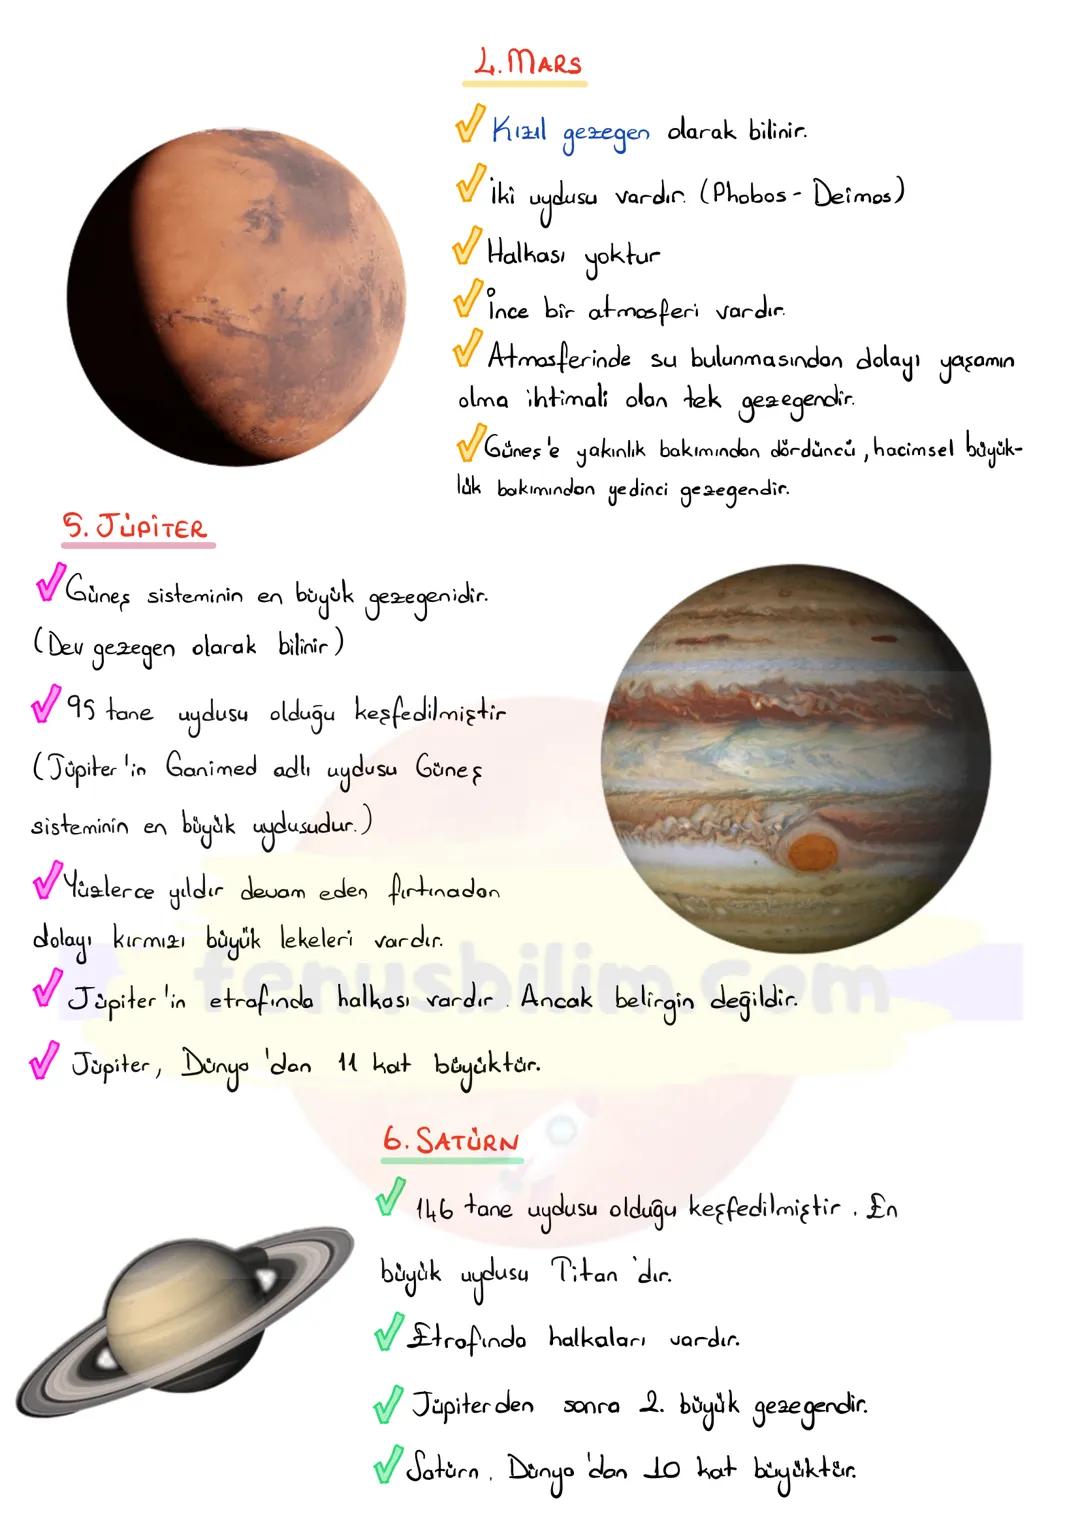 4. MARS
Kızıl gezegen olarak bilinir.
İki uydusu vardır. (Phobos - Deimos)
Halkası yoktur
İnce bir atmosferi vardır.
Atmosferinde su bulunmasından dolayı yaşamın
olma ihtimali olan tek gezegendir.
Güneş'e yakınlık bakımından dördüncü, hacimsel büyük-
lük bakımından yedinci gezegendir.
5. JÜPİTER
Güneş sisteminin en büyük gezegenidir.
(Dev gezegen olarak bilinir)
95 tane uydusu olduğu keşfedilmiştir
(Jüpiter'in Ganimed adlı uydusu Güneş
sisteminin en büyük uydusudur.)
Yüzlerce yıldır devam eden fırtınadan
dolayı kırmızı büyük lekeleri vardır.
fenusbilim.com
Jüpiter'in etrafında halkası vardır. Ancak belirgin değildir.
Jüpiter, Dünya'dan 11 kat büyüktür.
6. SATÜRN
146 tane uydusu olduğu keşfedilmiştir. En
büyük uydusu Titan'dır.
Etrafında halkaları vardır.
Jüpiterden sonra 2. büyük gezegendir.
Satürn, Dünya'dan 10 kat büyüktür.